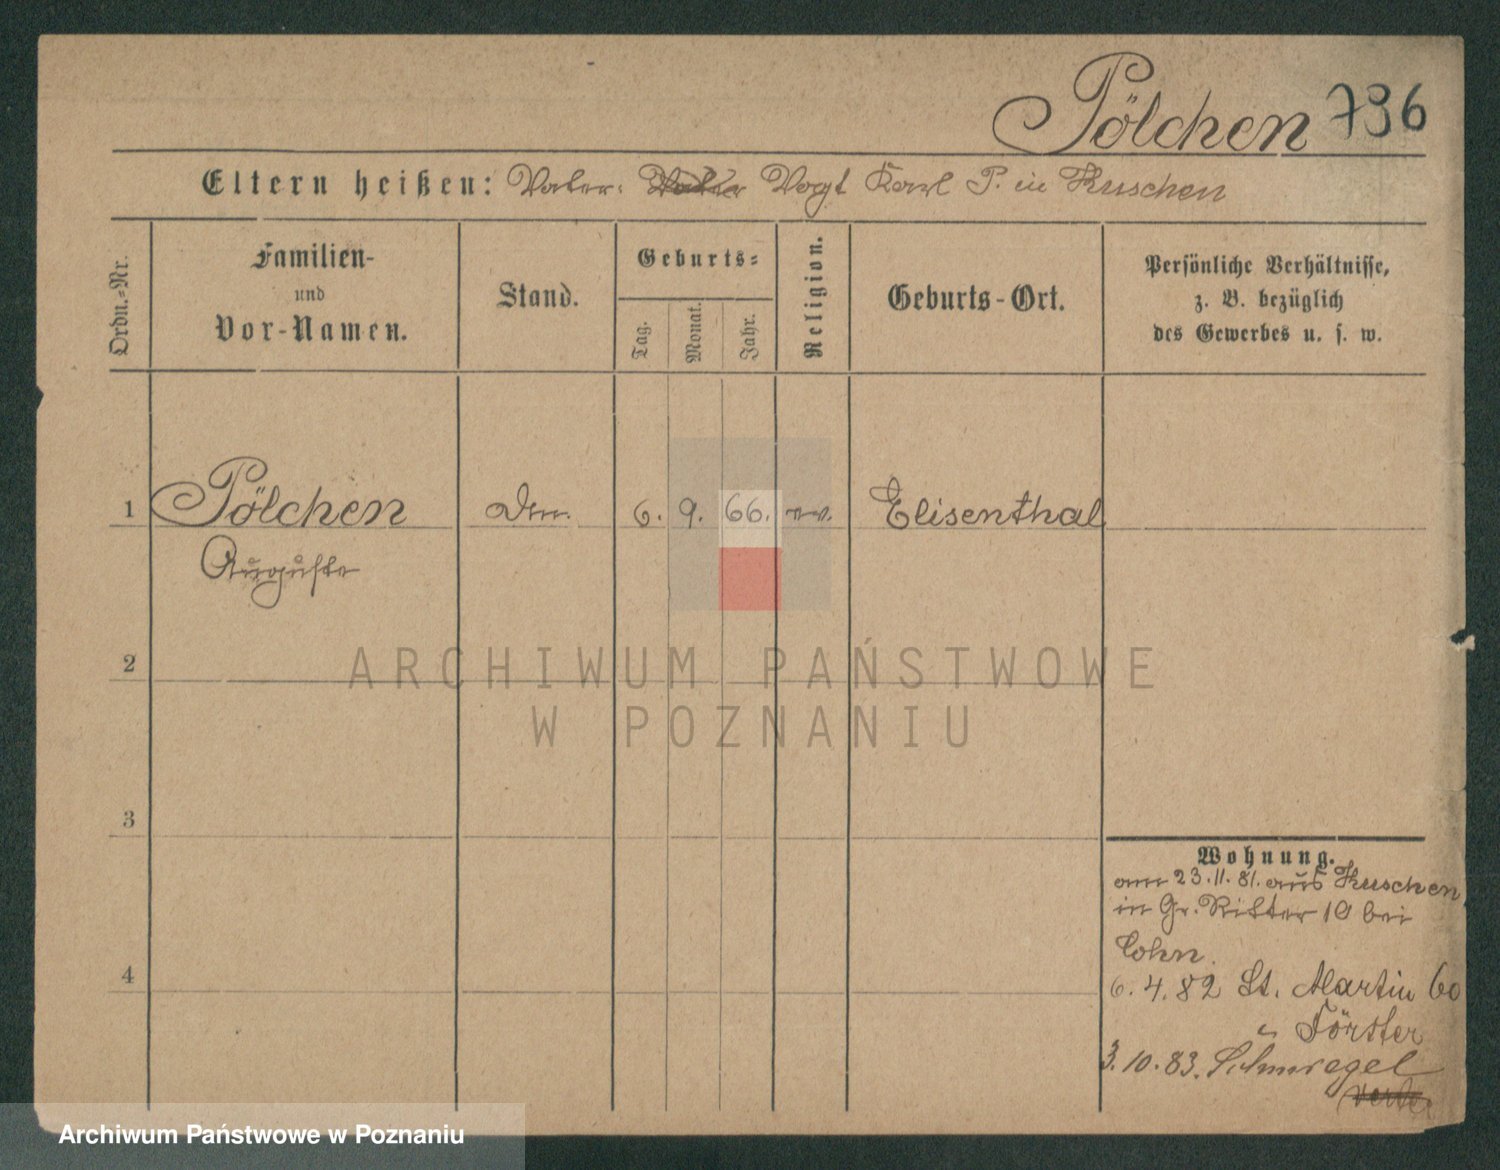 Pölchen 736
Eltern heißen: Vater: Vater Vogt Karl P. in Kuschen
Ordn.-Nr.
Familien-
und
Vor-Namen.
Stand.
Geburts-
Tag.
Monat.
Jahr.
Religion.
Geburts-Ort.
Persönliche Verhältnisse,
z. B. bezüglich
des Gewerbes u. s. w.
1 Pölchen 6. 9. 66. ev. Elisenthal
Auguste
2
3
4
Wohnung.
am 23.11.81. aus Kuschen
in Gr. Ritter 10 bei
Cohn.
6.4.82 St. Martin 60
Förster
3.10.83. Schmiegel
ARCHIWUM PAŃSTWOWE
W POZNANIU
Archiwum Państwowe w Poznaniu